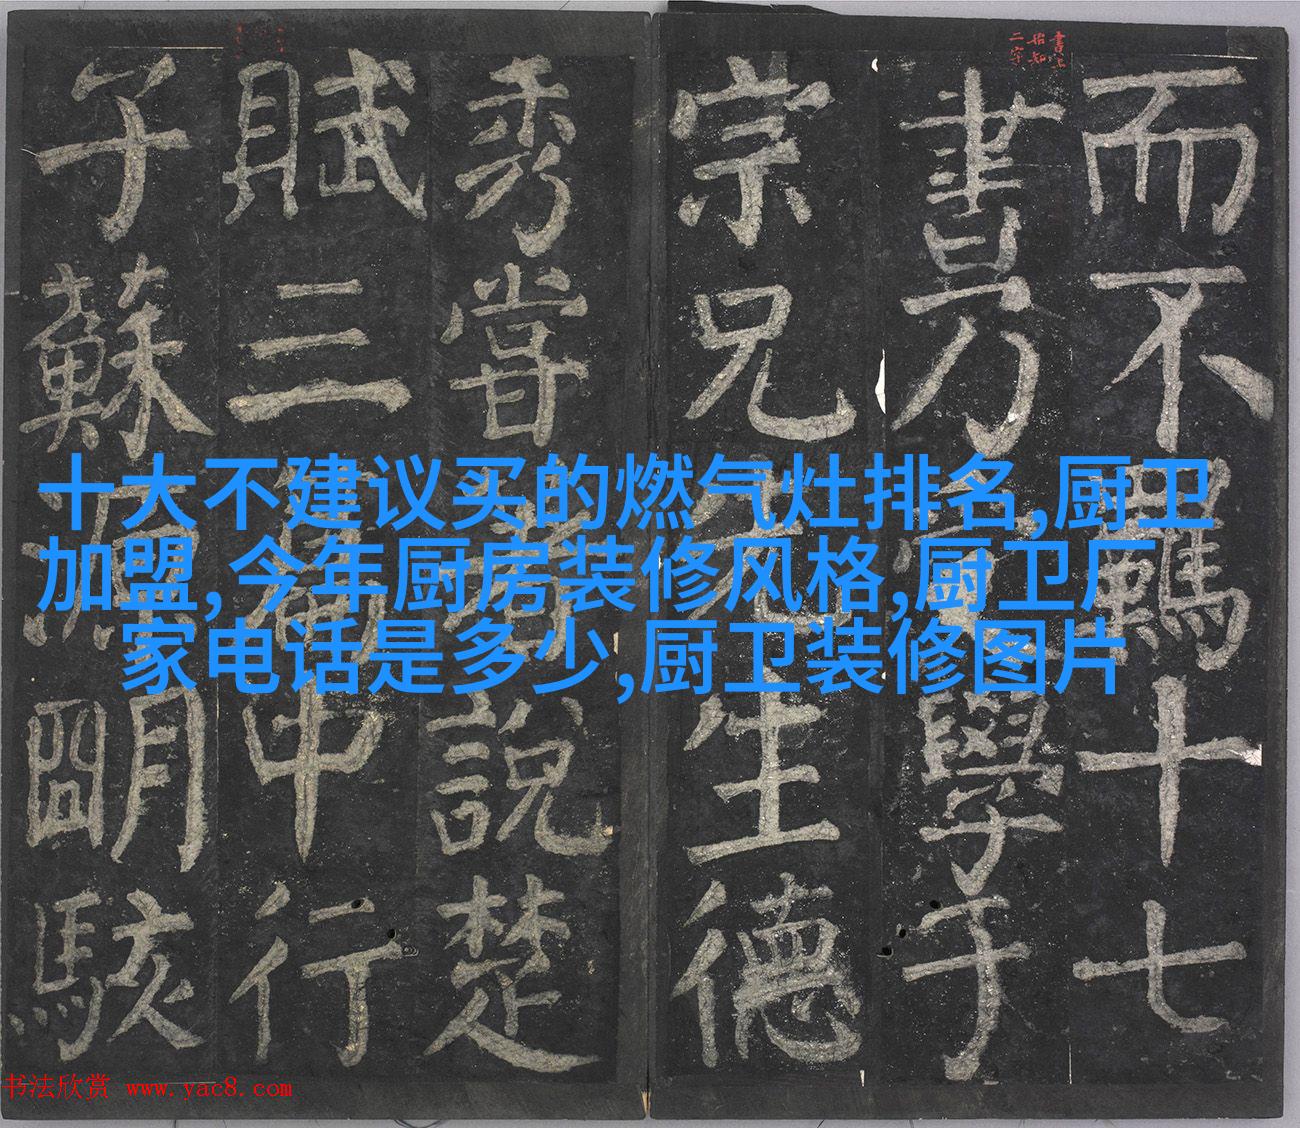 而不羈十七
書乃學于
宗兄先生德
秀嘗著說楚
賦三篇中行
子蘇源明駭
十大不建议买的燃气灶排名,厨卫
加盟,今年厨房装修风格,厨卫厂
家电话是多少,厨卫装修图片
书法欣赏 www.yac8.com